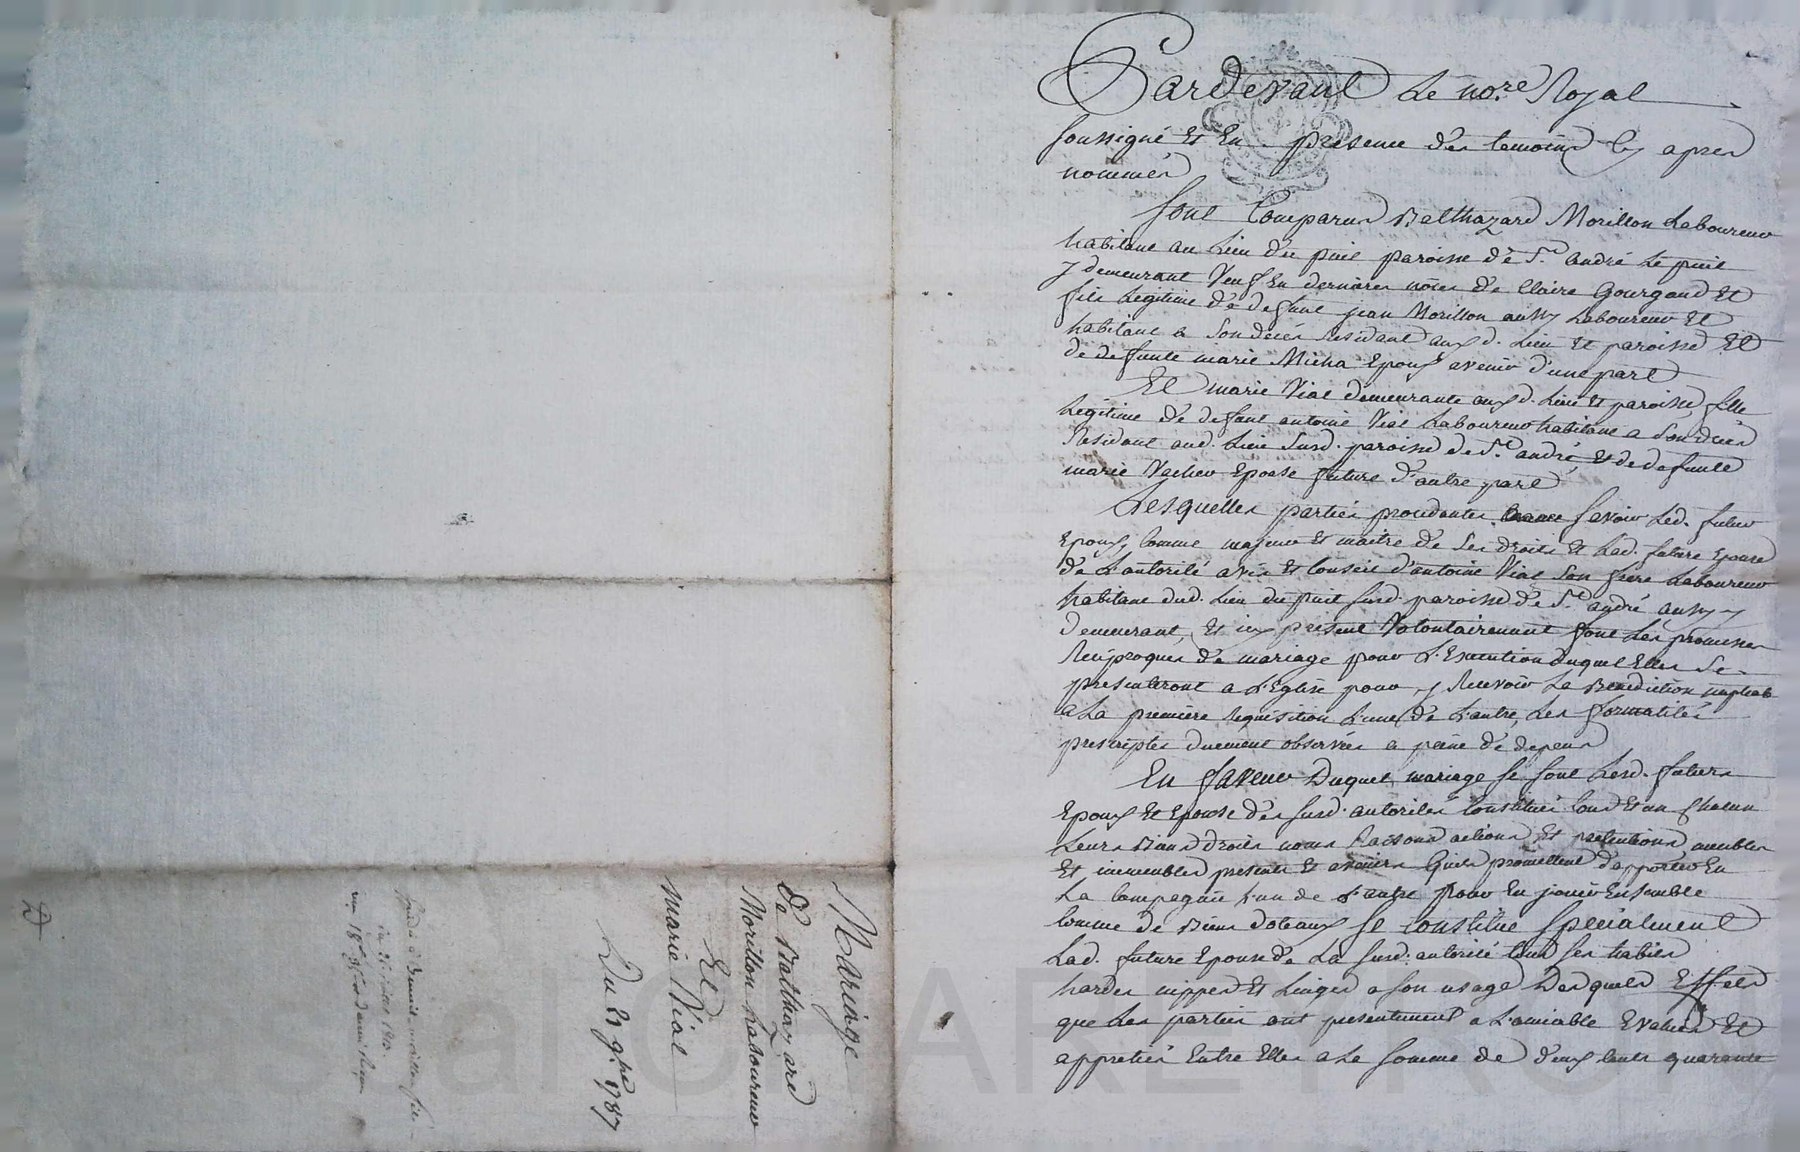 Pardevant Le no.re Royal
soussigné Et En presence des temoins Cy apres
nommés
sont Comparus Balthazard Morillon Laboureur
habitant au Lieu du puit paroisse de S.t andré Le puit
y demeurant Veuf En dernieres noces de Claire Gourgaud Et
fils Legitime de defunt jean Morillon aussy Laboureur Et
habitant a son deces Residant auxd. Lieu Et paroisse Et
de defunte marie Micha Epoux avenir d'une part
Et marie Vial demeurante auxd. Lieu Et paroisse, fille
Legitime de defunt antoine Vial Laboureur habitant a son deces
Residant aud. Lieu susd. paroisse de S.t andré, Et de defunte
marie Vacher Epouse future d'autre part
Lesquelles parties procedantes savoir Led. futur
Epoux, Comme majeur Et maitre de ses droits Et Lad. future Epouse
de L'autorité avis Et Conseil d'antoine Vial son frere Laboureur
habitant dud. Lieu du puit susd. paroisse de S.t andré aussy y
demeurant, Et icy present Volontairement font Les promesses
Reciproques de mariage pour L'Execution duquel Elles se
presenteront a L'Eglise pour y Recevoir La Benediction nuptiale
a La premiere Requisition L'une de L'autre, Les formalités
prescriptes duement observées a peine de depens
En faveur Duquel mariage se sont Lesd. futurs
Epoux Et Epouse des susd. autorités Constitués tous Et un Chacun
Leurs Biens droits noms Raisons actions Et pretentions meubles
Et immeubles presents Et avenirs Qu'ils promettent d'apporter En
La Compagnie L'un de L'autre pour En jouir Ensemble
Comme de Biens dotaux se Constitue specialement
Lad. future Epouse de La susd. autorité tous ses habits
hardes nippes Et Linges a son usage Desquels Effets
que Les parties ont presentement a L'amiable Evalués Et
appretiés Entre Elles a La somme de deux Cents quarante
Mariage
De Balthazard
Morillon Laboureur
Et
marie Vial
Du 21 9.bre 1787